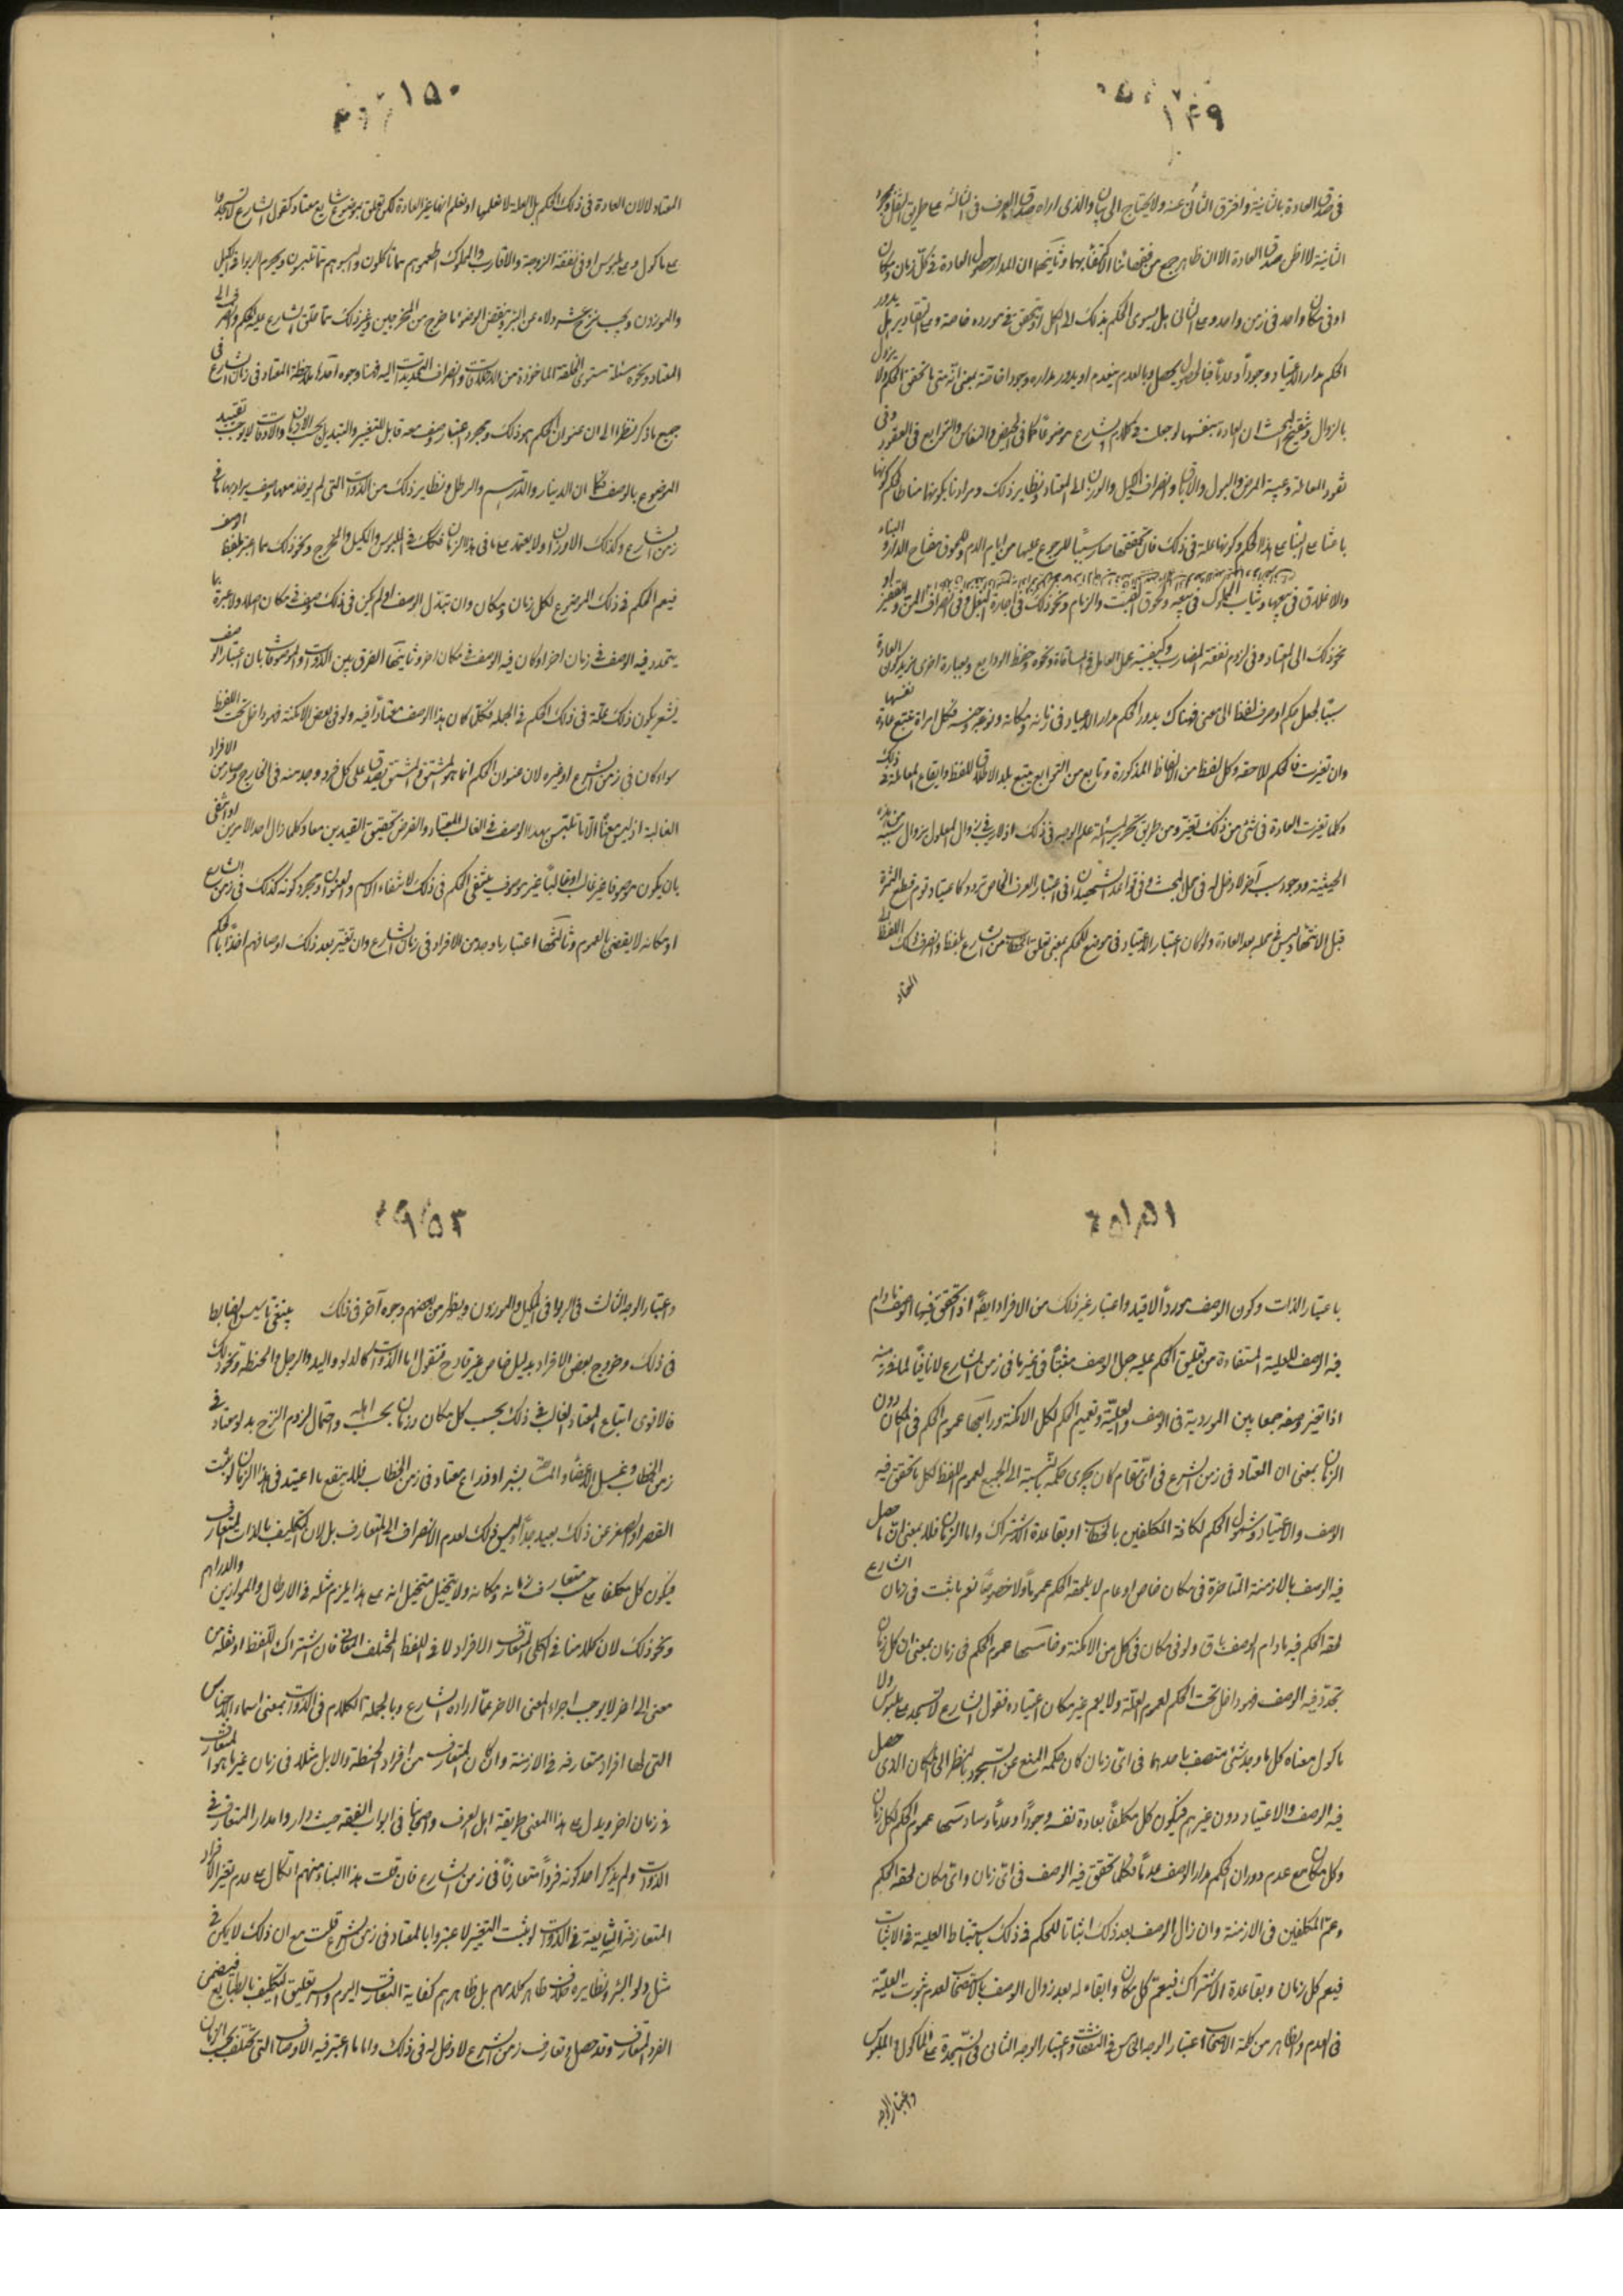 ١٤٩
فی صدق العادة بالثانیة وافترق الثانی عنه ولا یحتاج الی بیان والذی اراه صدق العرف فی الثالثة علی طریق النقل وبمجرد
الثانیة لا اظن صدق العادة الا ان ظاهر جمع من فقهائنا الاکتفاء بهما وثانیها ان المدار حصول العادة فی کل زمان ومکان
او فی مکان واحد فی زمن واحد وعلی الثانی هل یسری الحکم بذلک لا لکل او یتحقق فی مورده خاصة وعلی التقادیر هل یدور
الحکم مدار الاعتیاد وجوداً وعدماً فبالحصول یحصل وبالعدم ینعدم او یدور مداره وجودا خاصة بمعنی انه متی ما تحقق الحکم ولا یزول
بالزوال وتنقیح البحث ان العادة بنفسها لو جعلت فی کلام الشارع موضوعاً کما فی الحیض والنفاس والتوابع فی العقود وفی
نقود المعاملة وعیبیة المرض والبول والاباق وانصراف الکیل والوزن الی المعتاد ونظایر ذلک ومرادنا بکونها مناط الحکم کونها
باعثا علی البناء علی هذا الحکم وکونها علة فی ذلک فان تحققها صار سبباً للرجوع علیها من ایام الدم وللحوق مفتاح الدار والبناء
والاغلاق فی بیعها وثیاب المملوک فی بیعه ولحوق القتب والزمام ونحو ذلک فی اجارة البغل وفی انصراف المن والقفیز او
نحو ذلک الی المعتاد وفی لزوم نفقة المضارب وکیفیة عمل العامل فی المساقاة ونحوه وحفظ الودایع وبعبارة اخری ما یکون العادة
سبباً لجعل حکم او صرف لفظ الی معنی فهناک یدور الحکم مدار الاعتیاد فی زمانه ومکانه ونوعه وجنسه فکل امراة تتبع عادة نفسها
وان تغیرت فالحکم للاحقة وکل لفظ من الالفاظ المذکورة وتابع من التوابع یتبع بلد الاطلاق للفظ وایقاع المعاملة فی ذلک
وکلما تغیرت العادة فی شئ من ذلک تغیر ومن طریق تحریر المسئلة علم الوجه فی ذلک اذ لا ریب فی زوال المعلول بزوال سببه من هذه
الحیثیة ووجود سبب آخر لا دخل له فی محل البحث وفی قواعد الشهیدان فی اعتبار العرف الخاص تردد کاعتیاد قوم قطع الثمرة
قبل الانتهاء ولیس فی محله بعد العادة ولو کان اعتبار الاعتیاد فی موضع للحکم بمعنی تعلق الخطاب من الشارع بلفظ وانصراف ذلک اللفظ الی
المعتاد
١٥٠
المعتاد لا لان العادة فی ذلک الحکم بل العلة لا نعلمها او نعلم انها غیر العادة لکن تعلق بموضوع شایع معتاد کقول الشارع لا تسجدوا
علی ماکول وعلی ملبوس او فی نفقة الزوجة والاقارب والمملوک اطعموهم مما تاکلون والبسوهم مما تلبسون ویحرم الربا فی المکیل
والموزون ویجب نزح عشر دلاء عن البئر وینقض الوضوء ما خرج من المخرجین وغیر ذلک مما علق الشارع علیه الحکم وانصرف الی
المعتاد ونحوه مسئلة مستوی الخلقة الماخوذة من الاطلاقات وانصراف التحدیدات الیه فهنا وجوه احدها ملاحظة المعتاد فی زمان الشارع فی
جمیع ما ذکر نظرا الی ان عنوان الحکم هو ذلک وبمجرد اعتبار وصف معه قابل للتغییر والتبدیل بحسب الازمان والاوقات لا یوجب تقیید
الموضوع بالوصف فکما ان الدینار والدرهم والرطل ونظایر ذلک من الذوات التی لم یوخذ معها وصف یراد بها ما فی
زمن الشارع وکذلک الاوزان ولا یعتمد علی ما فی هذا الزمان فکذلک فی الملبوس والمکیل والمخرج ونحو ذلک مما اعتبر بلفظ الوصف
فیعم الحکم فی ذلک الموضوع لکل زمان ومکان وان تبدل الوصف او لم یکن فی ذلک وصف فی مکان اصلا ولا عبرة بما
یتجدد فیه الوصف فی زمان اخر او کان فیه الوصف فی مکان اخر وثانیها الفرق بین الذوات والموصوفات بان اعتبار الوصف
یشعر بکون ذلک علة فی ذلک الحکم فی الجملة فکل ما کان هذا الوصف معتاداً فیه ولو فی بعض الامکنة فهو داخل تحت اللفظ
سواء کان فی زمن الشرع او غیره لان عنوان الحکم انما هو المشتق والمشتق یصدق علی کل فرد وجد منه فی الخارج وصار من الافراد
الغالبة اذ لیس معناه الا ما تلبس بهذا الوصف فی الغالب المعتاد والغرض تحقیق القیدین معا وکلما زال احد الامرین او انتفی
بان یکون موصوفا غیر غالب او غالباً غیر موصوف ینتفی الحکم فی ذلک لانتفاء الاسم والعنوان ومجرد کونه کذلک فی زمن الشارع
او مکانه لا یقضی بالعموم وثالثها اعتبار ما وجد من الافراد فی زمان الشارع وان تغیر بعد ذلک اوصافهم اخذاً بالحکم
١٥١
باعتبار الذات وکون الوصف مورداً لا قیدا واعتبار غیر ذلک من الافراد ایضاً اذا تحقق فیها الوصف ما دام
فیه الوصف للعلیة المستفادة من تعلیق الحکم علیه جعل الوصف مثبتاً فی غیر ما فی زمن الشارع لا نافیاً لما فرد منه
اذا تغیر وصفه جمعا بین الموردیة فی الوصف والعلیة وتعمیم الحکم لکل الامکنة ورابعها عموم الحکم فی المکان دون
الزمان بمعنی ان المعتاد فی زمن الشرع فی ای مقام کان یجری حکمه بالنسبة الی الجمیع لعموم اللفظ لکل ما تحقق فیه
الوصف والاعتیاد وشمول الحکم لکافة المکلفین بالخطاب او بقاعدة الاشتراک واما الزمان فلا بمعنی ان ما حصل
فیه الوصف بالازمنة المتاخرة فی مکان خاص او عام لا یلحقه الحکم عموماً ولا خصوصاً نعم ما ثبت فی زمان الشارع
لحقه الحکم فیه ما دام الوصف باق ولو فی مکان فی کل من الامکنة وخامسها عموم الحکم فی زمان بمعنی ان کل زمان
تجدد فیه الوصف فهو داخل تحت الحکم لعموم العلة ولا یعم غیر مکان اعتیاده فقول الشارع لا تسجد علی ملبوس ولا
ماکول معناه کل ما وجد شئ متصف باحدهما فی ای زمان کان حکمه المنع عن السجود بالنظر الی المکان الذی حصل
فیه الوصف والاعتیاد دون غیرهم فیکون کل مکلفاً بعادة نفسه وجوداً وعدماً وسادسها عموم الحکم لکل زمان
وکل مکان مع عدم دوران الحکم مدار الوصف عدماً فکلما تحقق فیه الوصف فی ای زمان وای مکان لحقه الحکم
وعم المکلفین فی الازمنة وان زال الوصف بعد ذلک اثباتا للحکم فی ذلک باستنباط العلیة فی الاثبات
فیعم کل زمان وبقاعدة الاشتراک فیعم کل مکان وابقاء له بعد زوال الوصف بالاستصحاب لعدم ثبوت العلیة
فی العدم والظاهر من کلمة الاصحاب اعتبار الوجه الخامس فی النفقات واعتبار الوجه الثانی فی السجدة علی الماکول والملبوس
واعتبار الوجه
١٥٢
واعتبار الوجه الثالث فی الربا فی المکیل والموزون ویظهر من بعضهم وجوه آخر فی ذلک ینبغی تاسیس الضابط
فی ذلک وخروج بعض الافراد بدلیل خاص غیر قادح فنقول اما الذوات کالدلو والید والرجل والحنطة ونحو ذلک
فالاقوی اتباع المعتاد الغالب فی ذلک بحسب کل مکان وزمان بحسب اهله واحتمال لزوم النزح بدلو معتاد فی
زمن الخطاب وغسل الاعضاء والمسافة بشبر او ذراع معتاد فی زمن الخطاب فلا ینفع ما اعتید فی هذا الزمان لو ثبت
القصر او الصغر عن ذلک بعید جداً ولیس ذلک لعدم الانصراف الی المتعارف بل لان التکلیف بالذات المتعارف
فیکون کل مکلفا علی حسب متعارف زمانه ومکانه ولا یتخیل متخیل انه علی هذا یلزم مثله فی الارطال والموازین والدراهم
ونحو ذلک لان کلامنا فی الکلی المتعارف الافراد لا فی اللفظ المختلف المعانی فان اشتراک اللفظ او نقله من
معنی الی اخر لا یوجب اجراء المعنی الاخر عما اراده الشارع وبالجملة الکلام فی الذوات بمعنی اسماء الاجناس
التی لها افراد متعارفة فی الازمنة وان کان المتعارف من افراد الحنطة والابل مثلا فی زمان غیر ما هو المتعارف
فی زمان اخر ویدل علی هذا المعنی طریقة اهل العرف واصحابنا فی ابواب الفقه حیث داروا مدار المتعارف فی
الذوات ولم یذکر احد کونه فرداً متعارفاً فی زمن الشارع فان قلت هذا البناء منهم اتکال علی عدم تغیر الافراد
المتعارفة الشایعة فی الذوات لو ثبت التغییر لاعتبروا بالمعتاد فی زمن الشرع قلت مع ان ذلک لا یکون فی
مثل دلو البئر ونظایره خلاف ظاهر کلامهم بل ظاهرهم کفایة التعارف الیوم والسر تعلیق التکلیف بالطبایع فیضمن
الفرد المتعارف وقد حصل وتعارف زمن الشرع لا دخل له فی ذلک واما ما اعتبر فیه الاوصاف التی تختلف بحسب الزمان